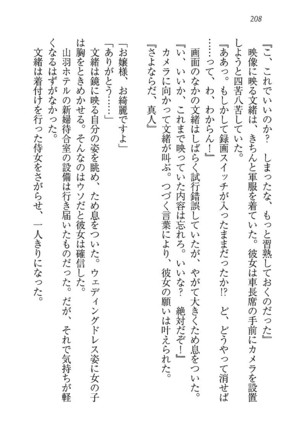 208
「こ、これでいいのか？　しまったな、もっと習熟しておくのだった」
　映像に映る文緒は、きちんと軍服を着ていた。彼女は車長席の手前にカメラを設置
しようと四苦八苦していた。
「ああっ。もしかして録画スイッチが入ったままだったか!?　ど、どうやって消せば
……って、わ、わからん！」
　画面のなかの文緒はしばらく試行錯誤していたが、やがて大きくため息をついた。
「い、いいか、これまで映っていた内容は忘れろ。いいな？　絶対だぞ！」
　カメラに向かって文緒が叫ぶ。つづく言葉により、彼女の願いは叶えられた。
「さよならだ、真人」
「お嬢様、お綺麗ですよ」
「ありがとう……」
　文緒は鏡に映る自分の姿を眺め、ため息をついた。ウェディングドレス姿に女の子
は胸をときめかせる。そんなのはウソだと彼女は確信した。
　山羽ホテルの新婦待合室の設備は行き届いたものだった。だが、それで気持ちが軽
くなるはずがなかった。
　文緒は着付けを行った侍女をさがらせ、一人きりになった。